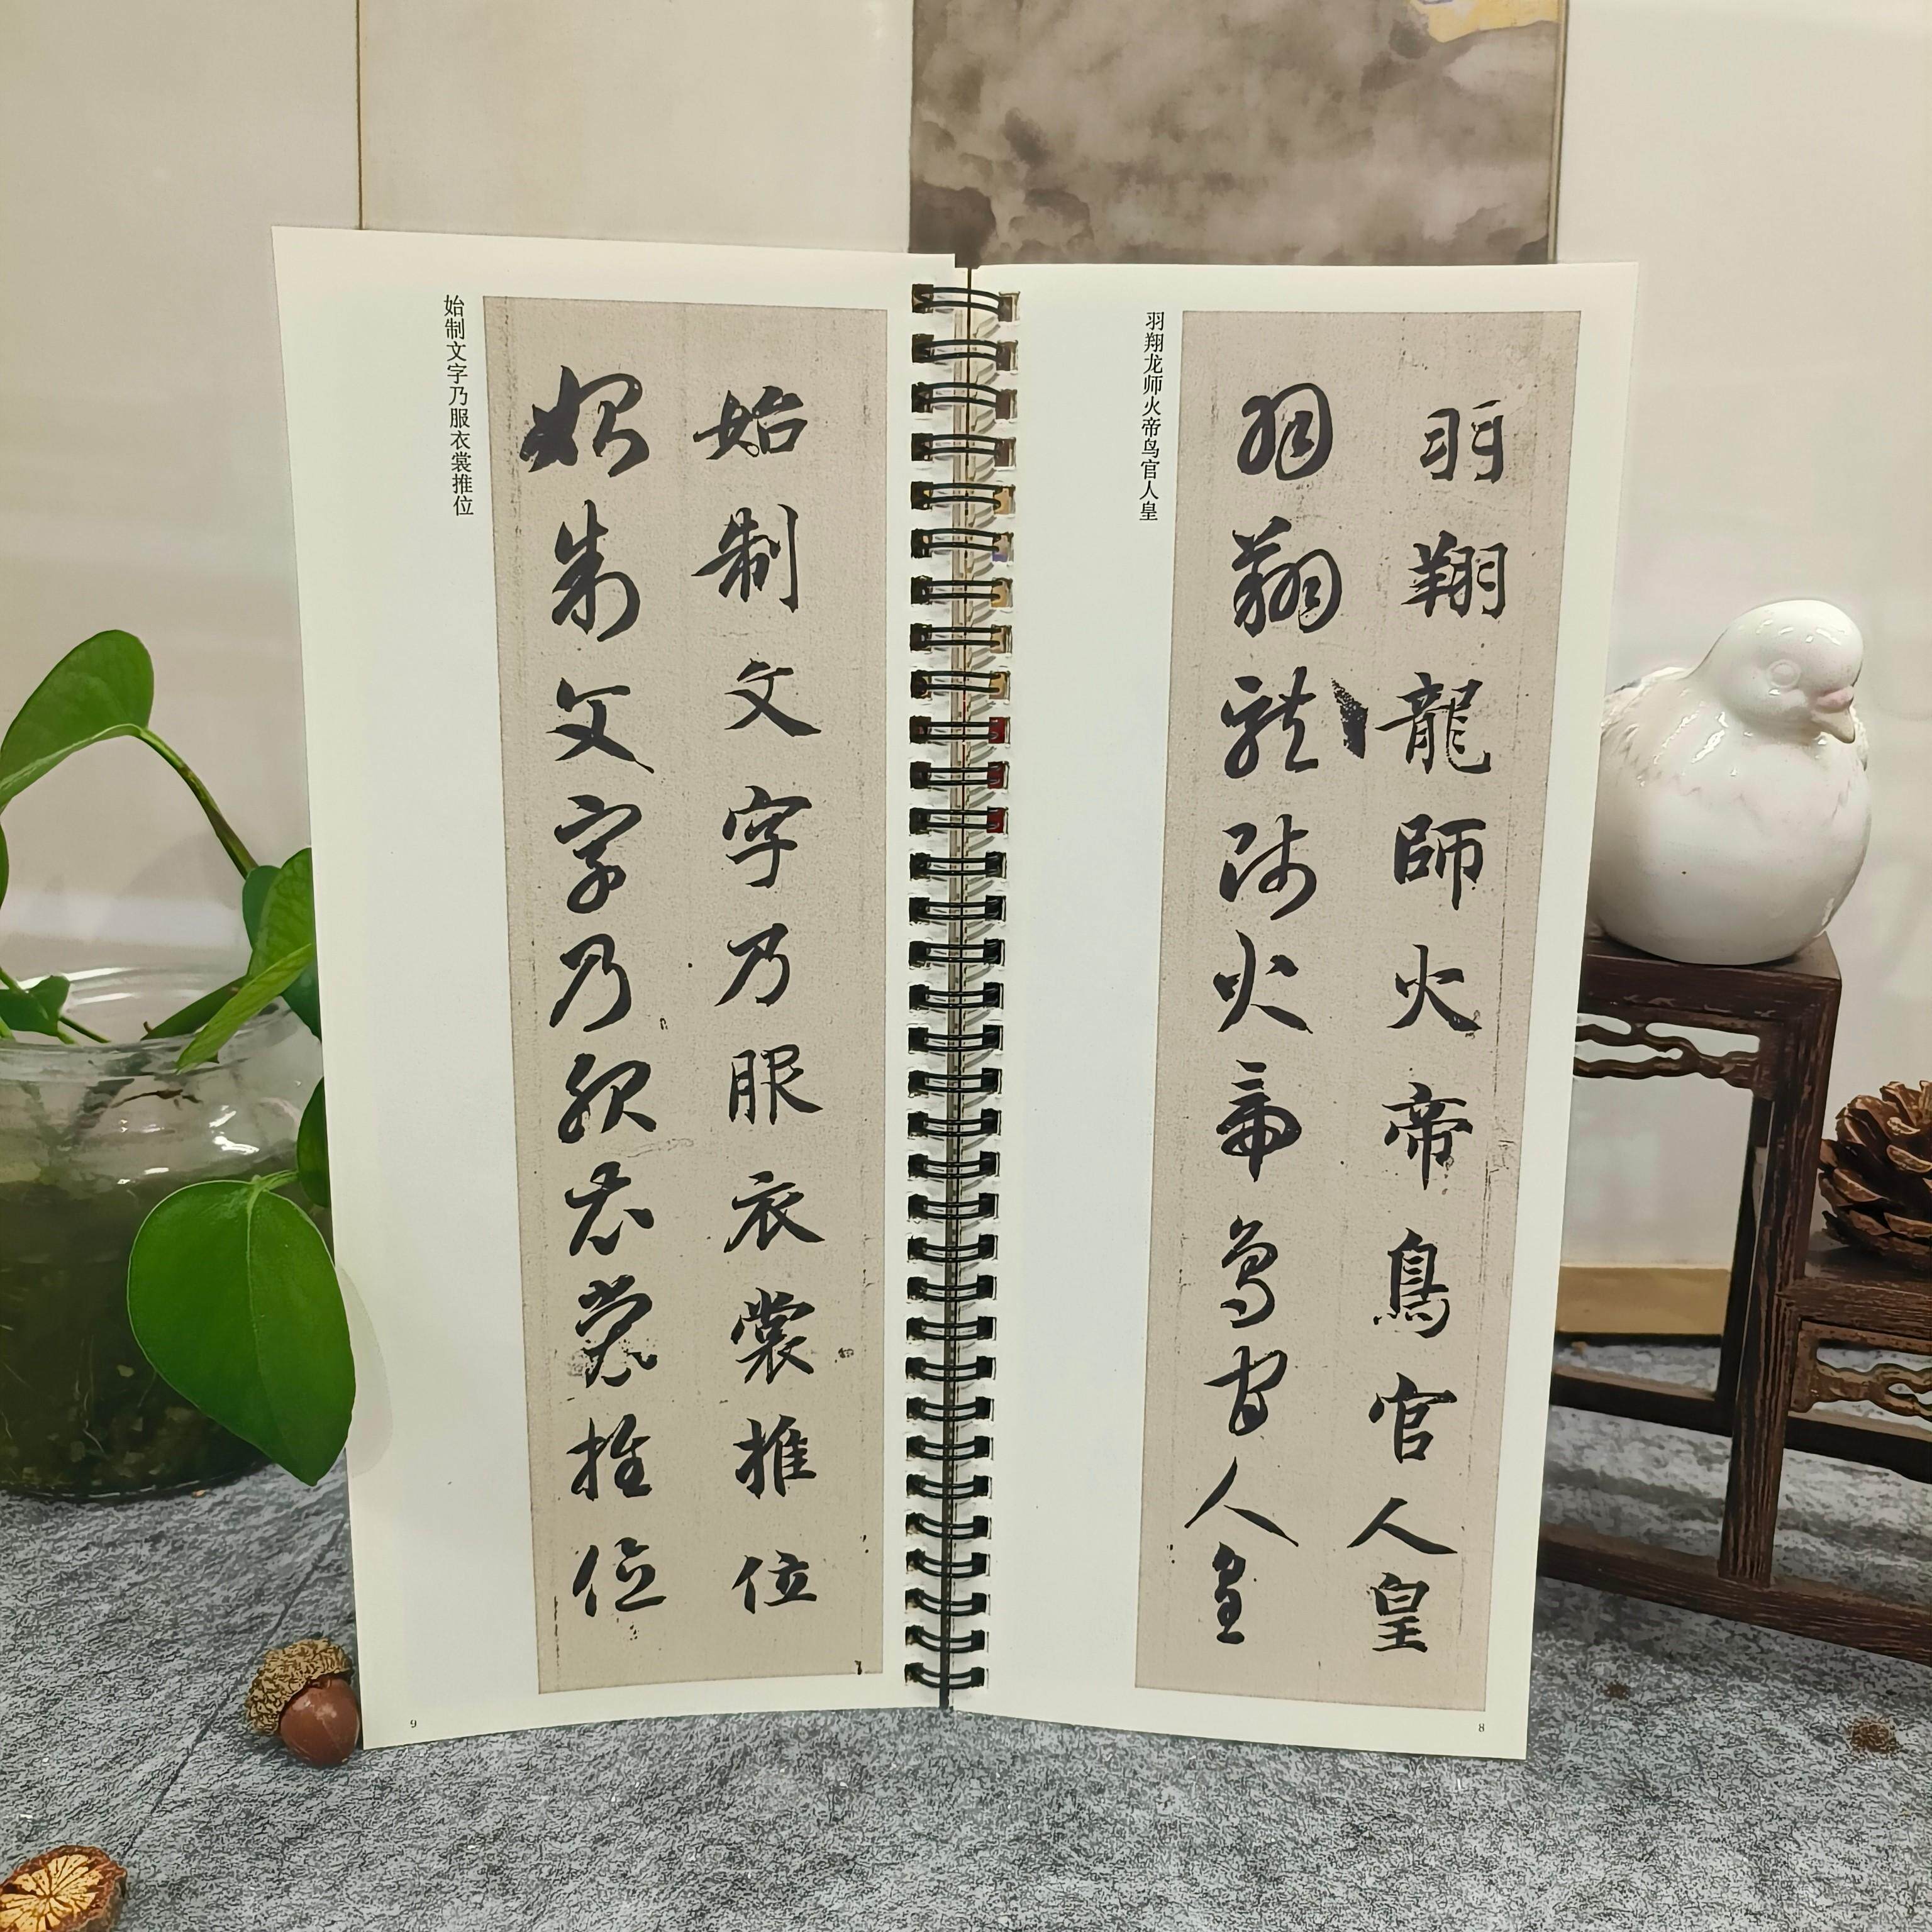 羽翔龍師火帝鳥官人皇
羽翔龍師火帝鳥官人皇
羽翔龙师火帝鸟官人皇
8
始制文字乃服衣裳推位
始制文字乃服衣裳推位
始制文字乃服衣裳推位
9